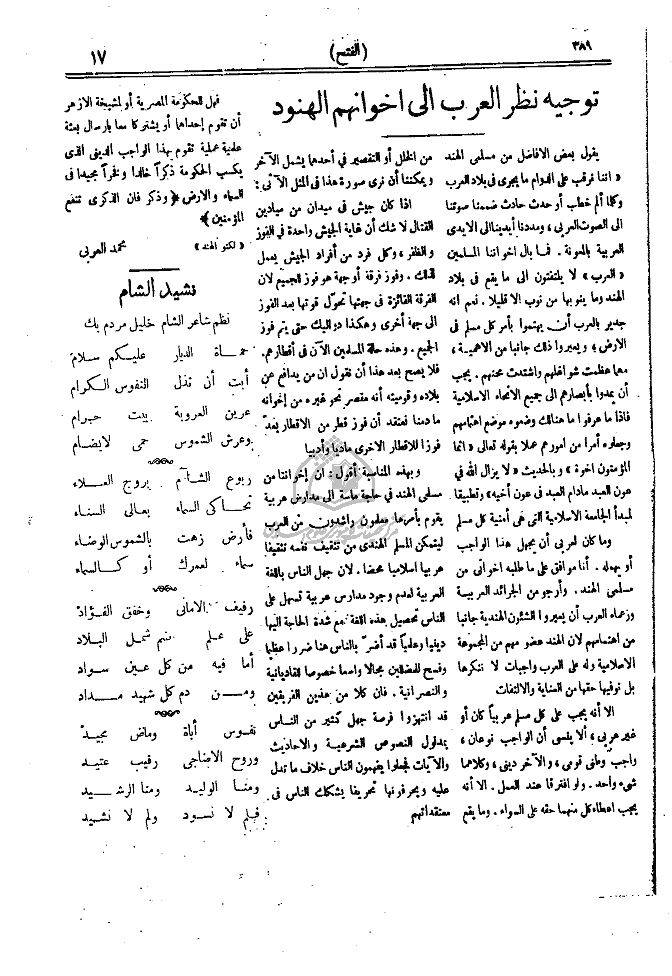 ٣٨٩
(الفتح)
١٧
توجيه نظر العرب الى اخوانهم الهنود
يقول بعض الافاضل من مسلمى الهند
« اننا نرقب على الدوام ما يجرى فى بلاد العرب
وكلما ألم خطاب أو حدث حادث ضممنا صوتنا
الى الصوت العربى، ومددنا أيدينا الى الايدى
العربية بالمعونة. فما بال اخواننا المسلمين
«العرب» لا يلتفتون الى ما يقع فى بلاد
الهند وما ينوبها من نوب الا قليلا. نعم انه
جدير بالعرب أن يهتموا بأمر كل مسلم فى
الارض، ويعيروا ذلك جانبا من الاهمية،
مهما عظمت شواغلهم واشتدت محنهم. يجب
أن يمدوا بأبصارهم الى جميع الانحاء الاسلامية
فاذا ما عرفوا ما هنالك وضعوه موضع اهتمامهم
وجعلوه أمرا من امورهم عملا بقوله تعالى «انما
المؤمنون اخوة» وبالحديث «لا يزال الله في
عون العبد مادام العبد فى عون أخيه» وتطبيقا
لمبدأ الجامعة الاسلامية التى هى أمنية كل مسلم
وما كان لعربى أن يجهل هذا الواجب
أو يهمله. أنا موافق على ما طلبه اخوانى من
مسلمى الهند. وأرجو من الجرائد العربية
وزعماء العرب أن يعيروا الشئون الهندية جانبا
من اهتمامهم لان الهند عضو مهم من المجموعة
الاسلامية وله على العرب واجبات لا ننكرها
بل نوفيها حقها من العناية والالتفات
الا أنه يجب على كل مسلم عربيا كان أو
غير عربى، ألا ينسى أن الواجب نوعان،
واجب وطنى قومى، والآخر دينى، وكلاهما
شىء واحد. ولو افترقا عند العمل. الا أنه
يجب اعطاء كل منهما حقه على السواء. وما يقع
من الخلل أو التقصير في أحدهما يشمل الآخر
ويمكننا أن نرى صورة هذا فى المثل الآتى:
اذا كان جيش فى ميدان من ميادين
القتال لا شك أن غاية الجيش واحدة في الفوز
والظفر، وكل فرد من أفراد الجيش يعمل
لذلك. وفوز فرقة أو جهة هو فوز للجميع لان
الفرقة الفائزة فى جهتها تحوّل قوتها بعد الفوز
الى جهة أخرى وهكذا دواليك حتى يتم فوز
الجميع. وهذه حالة المسلمين الآن فى أقطارهم.
فلا يصح بعد هذا أن نقول ان من يدافع عن
بلاده وقوميته أنه مقصر نحو غيره من إخوانه
ما دمنا نعتقد أن فوز قطر من الاقطار يعدّ
فوزا للاقطار الاخرى ماديا وأدبيا
وبهذه المناسبة أقول: ان إخواننا من
مسلمى الهند في حاجة ماسة الى مدارس عربية
يقوم بأمرها معلمون راشدون من العرب
ليتمكن المسلم الهندى من تثقيف نفسه تثقيفا
عربيا اسلاميا محضا. لان جهل الناس باللغة
العربية لعدم وجود مدارس عربية تسهل على
الناس تحصيل هذه اللغة مع شدة الحاجة اليها
دينيا وعلميا قد أضر بالناس هنا ضررا عظيما
وفسح للمضللين مجالا واسعا خصوصا للقاديانية
والنصرانية. فان كلا من هذين الفريقين
قد انتهزوا فرصة جهل كثير من الناس
بمدلول النصوص الشرعية والاحاديث
والآيات فجعلوا يفهمون الناس خلاف ما تدل
عليه ويحرفونها تحريفا يشكك الناس فى
معتقداتهم
فهل للحكومة المصرية أو لمشيخة الازهر
أن تقوم إحداهما أو يشتركا معا بارسال بعثة
علمية عملية تقوم بهذا الواجب الدينى الذى
يكسب الحكومة ذكراً خالدا وفخراً مجيدا فى
السماء والارض ﴿وذكر فان الذكرى تنفع
المؤمنين﴾
« لكنو الهند » محمد العربى
نشيد الشام
نظم شاعر الشام خليل مردم بك
حماة الديار عليكم سلام
أبت أن تذل النفوس الكرام
عرين العروبة بيت حرام
وعرش الشموس حمى لايضام
ربوع الشآم بروج العلاء
تحاكى السماء بعالى السناء
فأرض زهت بالشموس الوضاء
سماء لعمرك أو كالسماء
رفيف الامانى وخفق الفؤاد
على علم ضم شمل البلاد
أما فيه من كل عين سواد
ومن دم كل شهيد مداد
نفوس أباة وماض مجيد
وروح الاضاحى رقيب عتيد
ومنا الوليد ومنا الرشيد
فلم لا نسود ولم لا نشيد